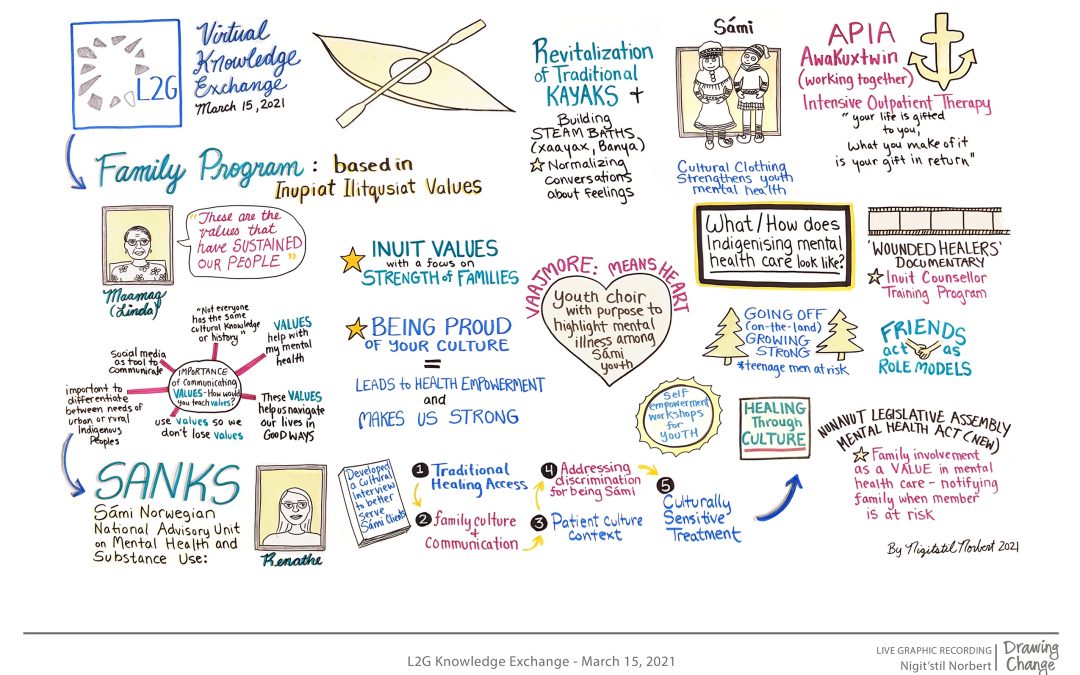 L2G
Virtual
Knowledge
Exchange
March 15, 2021
Family Program : based in
Inupiat Ilitqusiat Values
"These are the
values that
have SUSTAINED
OUR PEOPLE"
Maamaq
(Linda)
IMPORTANCE
of Communicating
VALUES - How would
you teach values?
"Not everyone
has the same
cultural knowledge
or history"
VALUES
help with
my mental
health
Social media
as tool to
communicate
important to
differentiate
between needs of
urban or rural
Indigenous
Peoples
use values so we
don't lose values
These VALUES
help us navigate
our lives in
GOOD WAYS
INUIT VALUES
with a focus on
STRENGTH of FAMILIES
BEING PROUD
OF YOUR CULTURE
=
LEADS to HEALTH EMPOWERMENT
and
MAKES US STRONG
Revitalization
of Traditional
KAYAKS +
Building
STEAM BATHS
(xaayax, Banya)
Normalizing
conversations
about feelings
Sámi
Cultural Clothing
Strengthens youth
mental health
APIA
Awakuxtwin
(working together)
Intensive Outpatient Therapy
"your life is gifted
to you,
What you make of it
is your gift in return"
VAAJMORE: MEANS HEART
Youth choir
with purpose to
highlight mental
illness among
Sámi
youth
What/How does
Indigenising mental
health care look like?
'WOUNDED HEALERS'
DOCUMENTARY
Inuit Counsellor
Training Program
GOING OFF
(on-the-land)
GROWING
STRONG
*teenage men at risk
FRIENDS
act as
ROLE MODELS
Self
empowerment
workshops
for
YOUTH
HEALING
Through
CULTURE
NUNAVUT LEGISLATIVE ASSEMBLY
MENTAL HEALTH ACT (NEW)
Family involvement
as a VALUE in mental
health care - notifying
family when member
is at risk
SANKS
Sámi Norwegian
National Advisory Unit
on Mental Health and
Substance Use:
Renathe
Developed
a Cultural
Interview
to better
serve
Sámi Clients
1 Traditional
Healing Access
2 family culture
+
Communication
3 Patient culture
context
4 Addressing
discrimination
for being Sámi
5
Culturally
Sensitive
Treatment
By Nigitstil Norbert 2021
L2G Knowledge Exchange - March 15, 2021
LIVE GRAPHIC RECORDING
Nigit'stil Norbert
Drawing
Change